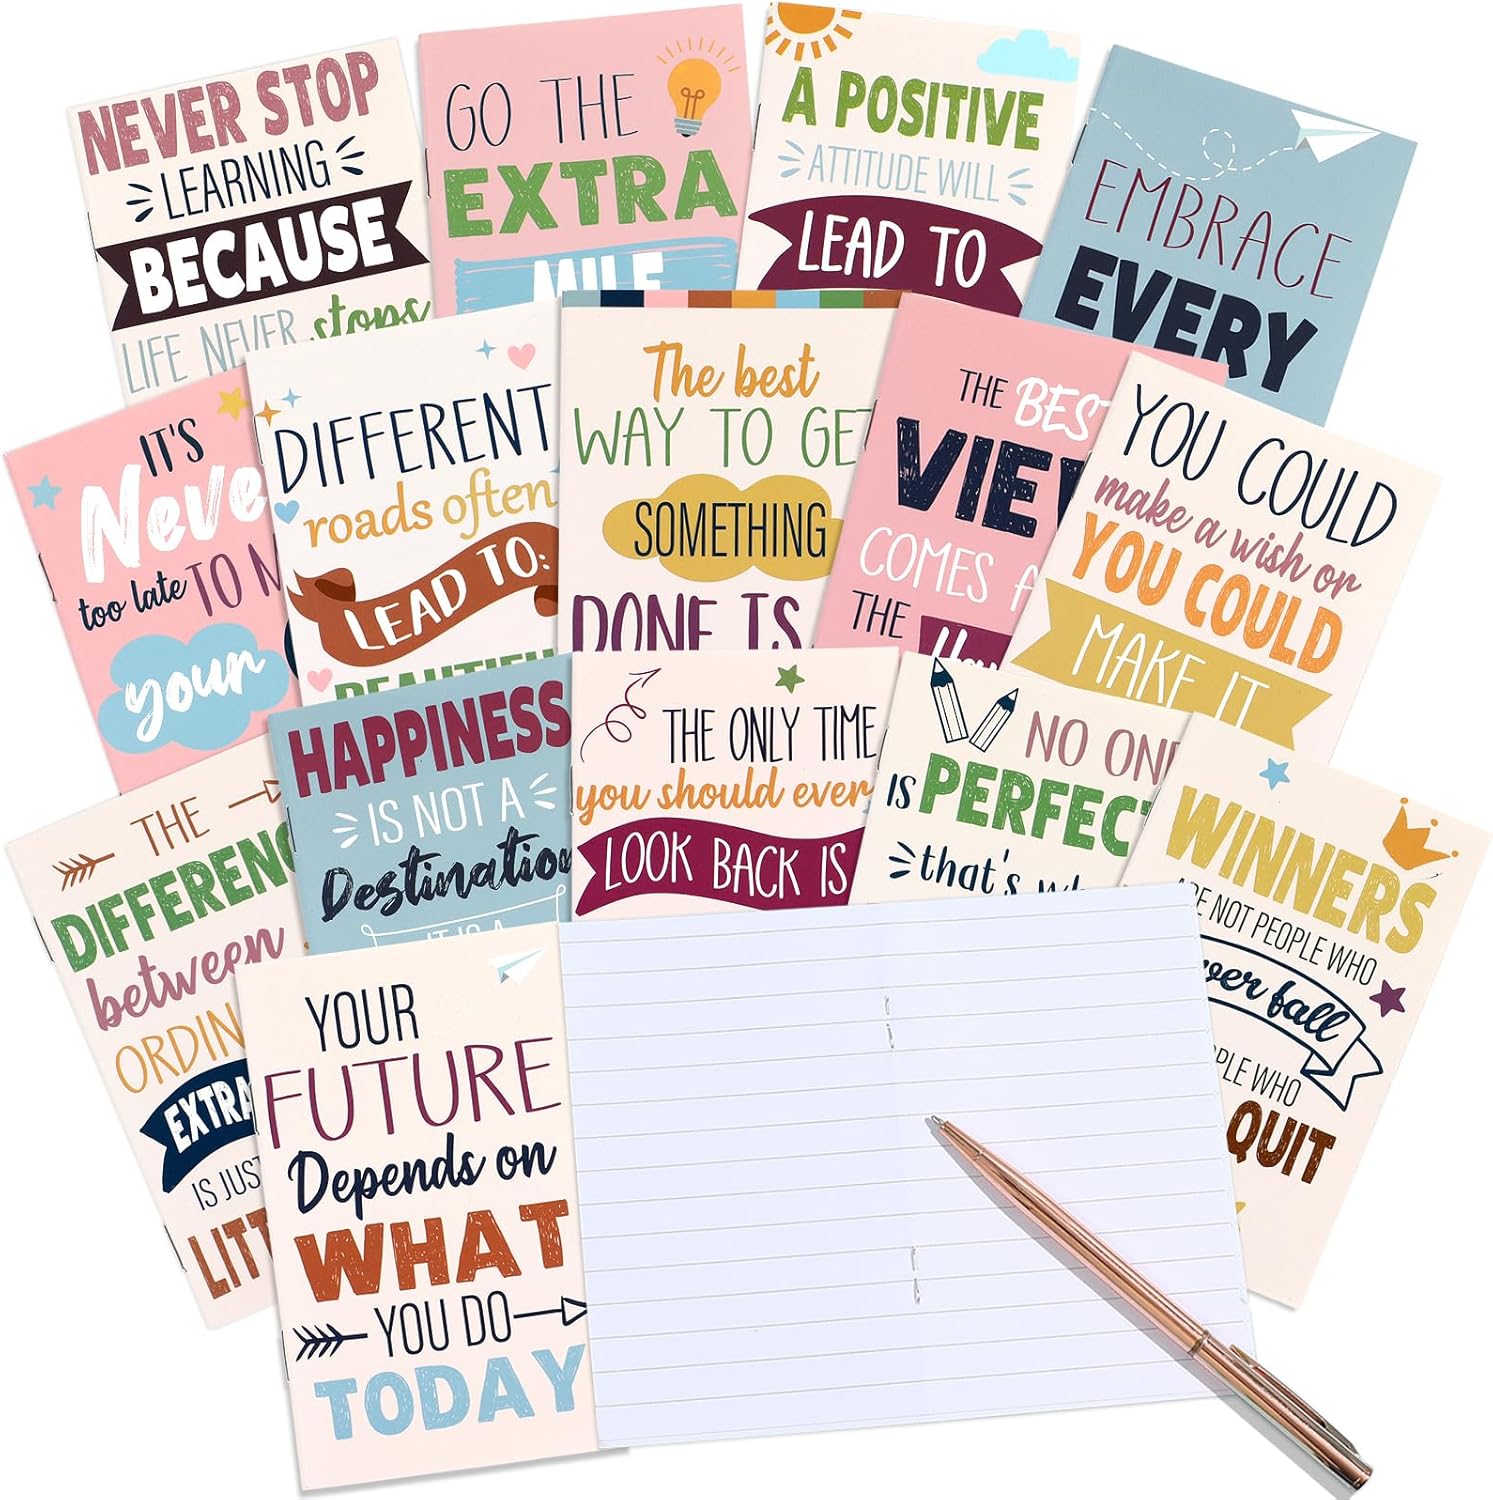 NEVER STOP
LEARNING
BECAUSE
LIFE NEVER stops
GO THE
EXTRA
MILE
A POSITIVE
ATTITUDE WILL
LEAD TO
EMBRACE
EVERY
IT'S
Neve
too late TO
your
DIFFERENT
roads often
LEAD TO:
BEAUTIFU
The best
WAY TO GET
SOMETHING
DONE IS
THE BEST
VIEW
COMES A
THE
YOU COULD
make a wish or
YOU COULD
MAKE IT
THE
DIFFERENC
between
ORDIN
EXTRA
IS JUST
LITT
HAPPINESS
IS NOT A
Destination
IT IS A
THE ONLY TIME
you should ever
LOOK BACK IS
NO ONE
IS PERFECT
that's
WINNERS
ARE NOT PEOPLE WHO
ver fall
PLE WHO
QUIT
YOUR
FUTURE
Depends on
WHAT
YOU DO
TODAY